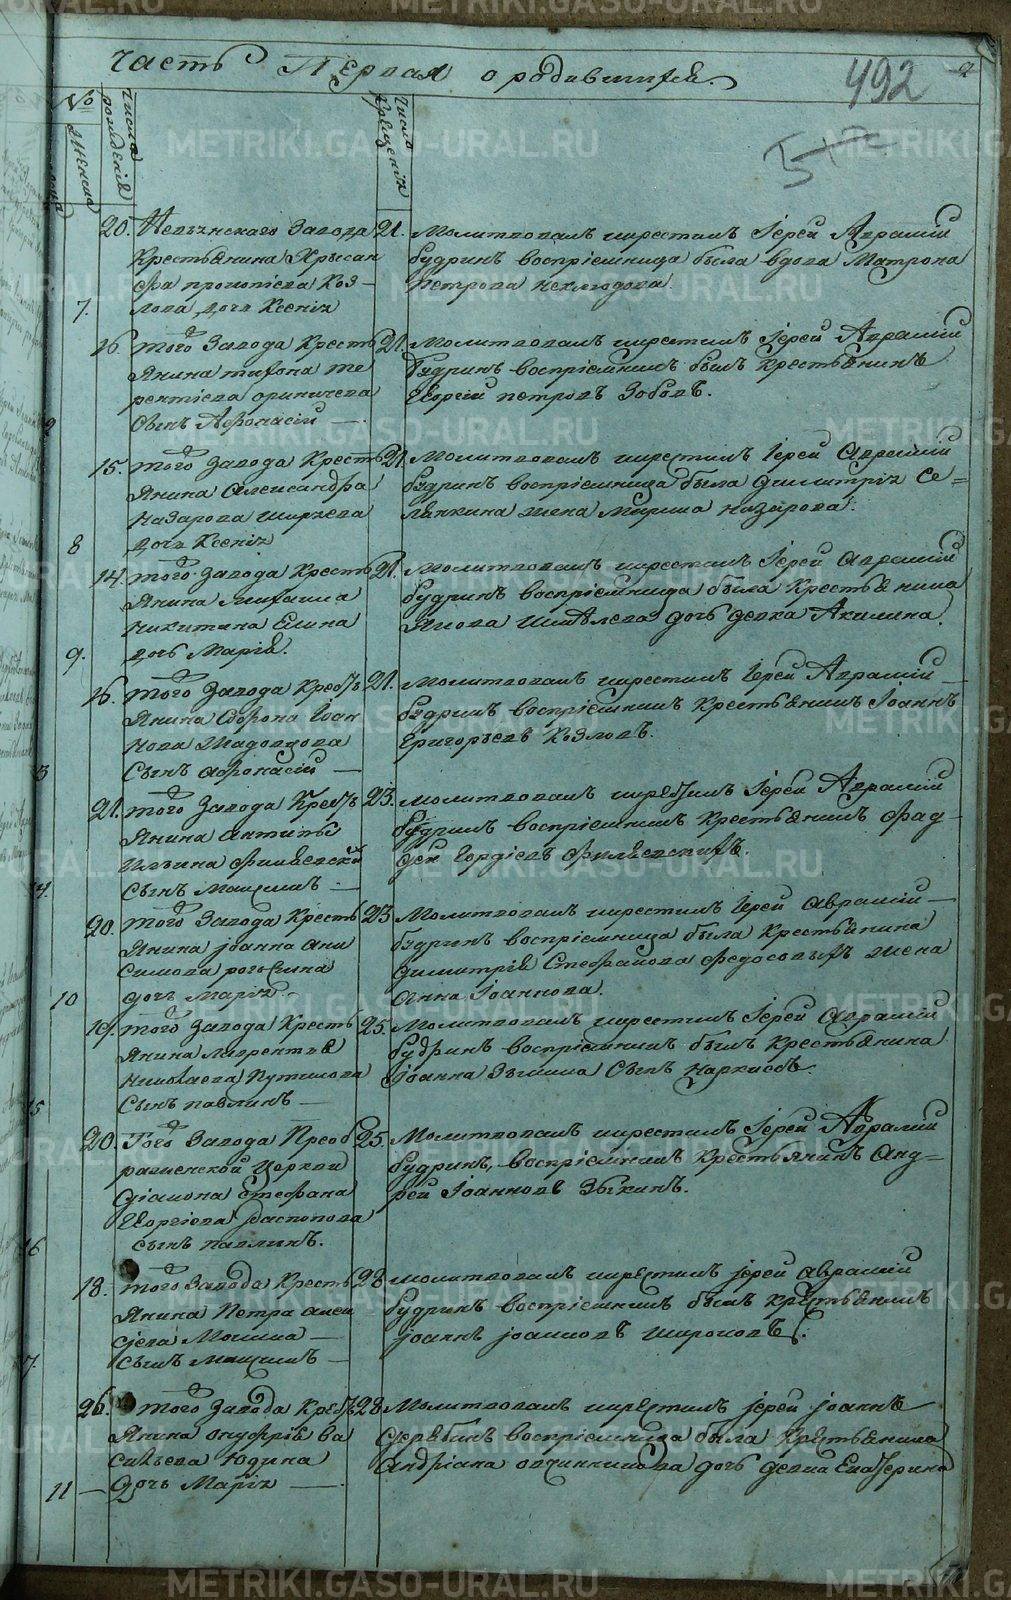 Часть Первая о родившихся.
492
№
женска
Числа рождения
Число крещения
20. Невьянскаго Завода
крестьянина Хрисан
фа прокопіева Коз-
лова дочь Ксенія
7.
21. Молитвовалъ и крестилъ Іерей Аврамій
Будринъ воспріемница была вдова Матрона
Петрова Неклюдова.
16. того Завода Кресть
янина тихона те
рентіева
Сынъ Афонасій —
21. Молитвовалъ и крестилъ Іерей Аврамій
Будринъ воспріемникъ былъ Крестьянинъ
Георгій петровъ Зобовъ.
15. того Завода Кресть
янина Александра
Назарова
дочь Ксенія
8
21. Молитвовалъ и крестилъ Іерей Аврамій
Будринъ воспріемница была димитрія Се=
лянкина жена Мариша назарова.
14. того Завода Кресть
янина михаила
Никитина Елина
дочь Марія.
9.
21. Молитвовалъ и крестилъ Іерей Аврамій
Будринъ воспріемница была Крестьянина
Якова дочь девка Акилина.
16. того Завода Кресть
янина Софрона Іоан
нова
Сынъ афонасій —
21. Молитвовалъ и крестилъ Іерей Аврамій —
Будринъ воспріемникъ Крестьянинъ Іоаннъ
Григорьевъ Козловъ.
21. того Завода Кресть
янина Антипы
Ильина
Сынъ Максимъ —
23. Молитвовалъ и крестилъ Іерей Аврамій
Будринъ воспріемникъ Крестьянинъ Фад-
дей Гордіевъ
20. того Завода Кресть
янина іоанна ани
симова
дочь Марія —
10
23 Молитвовалъ и крестилъ Іерей Аврамій —
Будринъ воспріемница была Крестьянина
димитрія Стефанова федосовыхъ жена
Анна Іоаннова.
19. того Завода Кресть
янина лаврентія
Николаева Путилова
Сынъ павлинъ —
25. Молитвовалъ и крестилъ Іерей Аврамій
Будринъ воспріемникъ былъ Крестьянина
Іоанна Сынъ Наркисъ.
20. Того Завода Преоб
раженской Церкви
Діакона Стефана
Георгіева Распопова
сынъ павлинъ.
25. Молитвовалъ и крестилъ Іерей Аврамій
Будринъ, воспріемникъ Крестьянинъ Анд=
рей Іоанновъ Зыкинъ.
18. того Завода Кресть
янина Петра алек
сіева Мокина —
Сынъ Максимъ —
28 молитвовалъ и крестилъ іерей аврамій
Будринъ воспріемникъ былъ Крестьянинъ
іоаннъ іоанновъ Широковъ.
26. того Завода Кресть
янина онуфрія ва
сильева Юдина
11 — дочь Марія —
28 Молитвовалъ и крестилъ іерей іоаннъ
Серебрянъ воспріемница была Крестьянина
Андріана овчинникова дочь девка Екатерина
METRIKI.GASO-URAL.RU